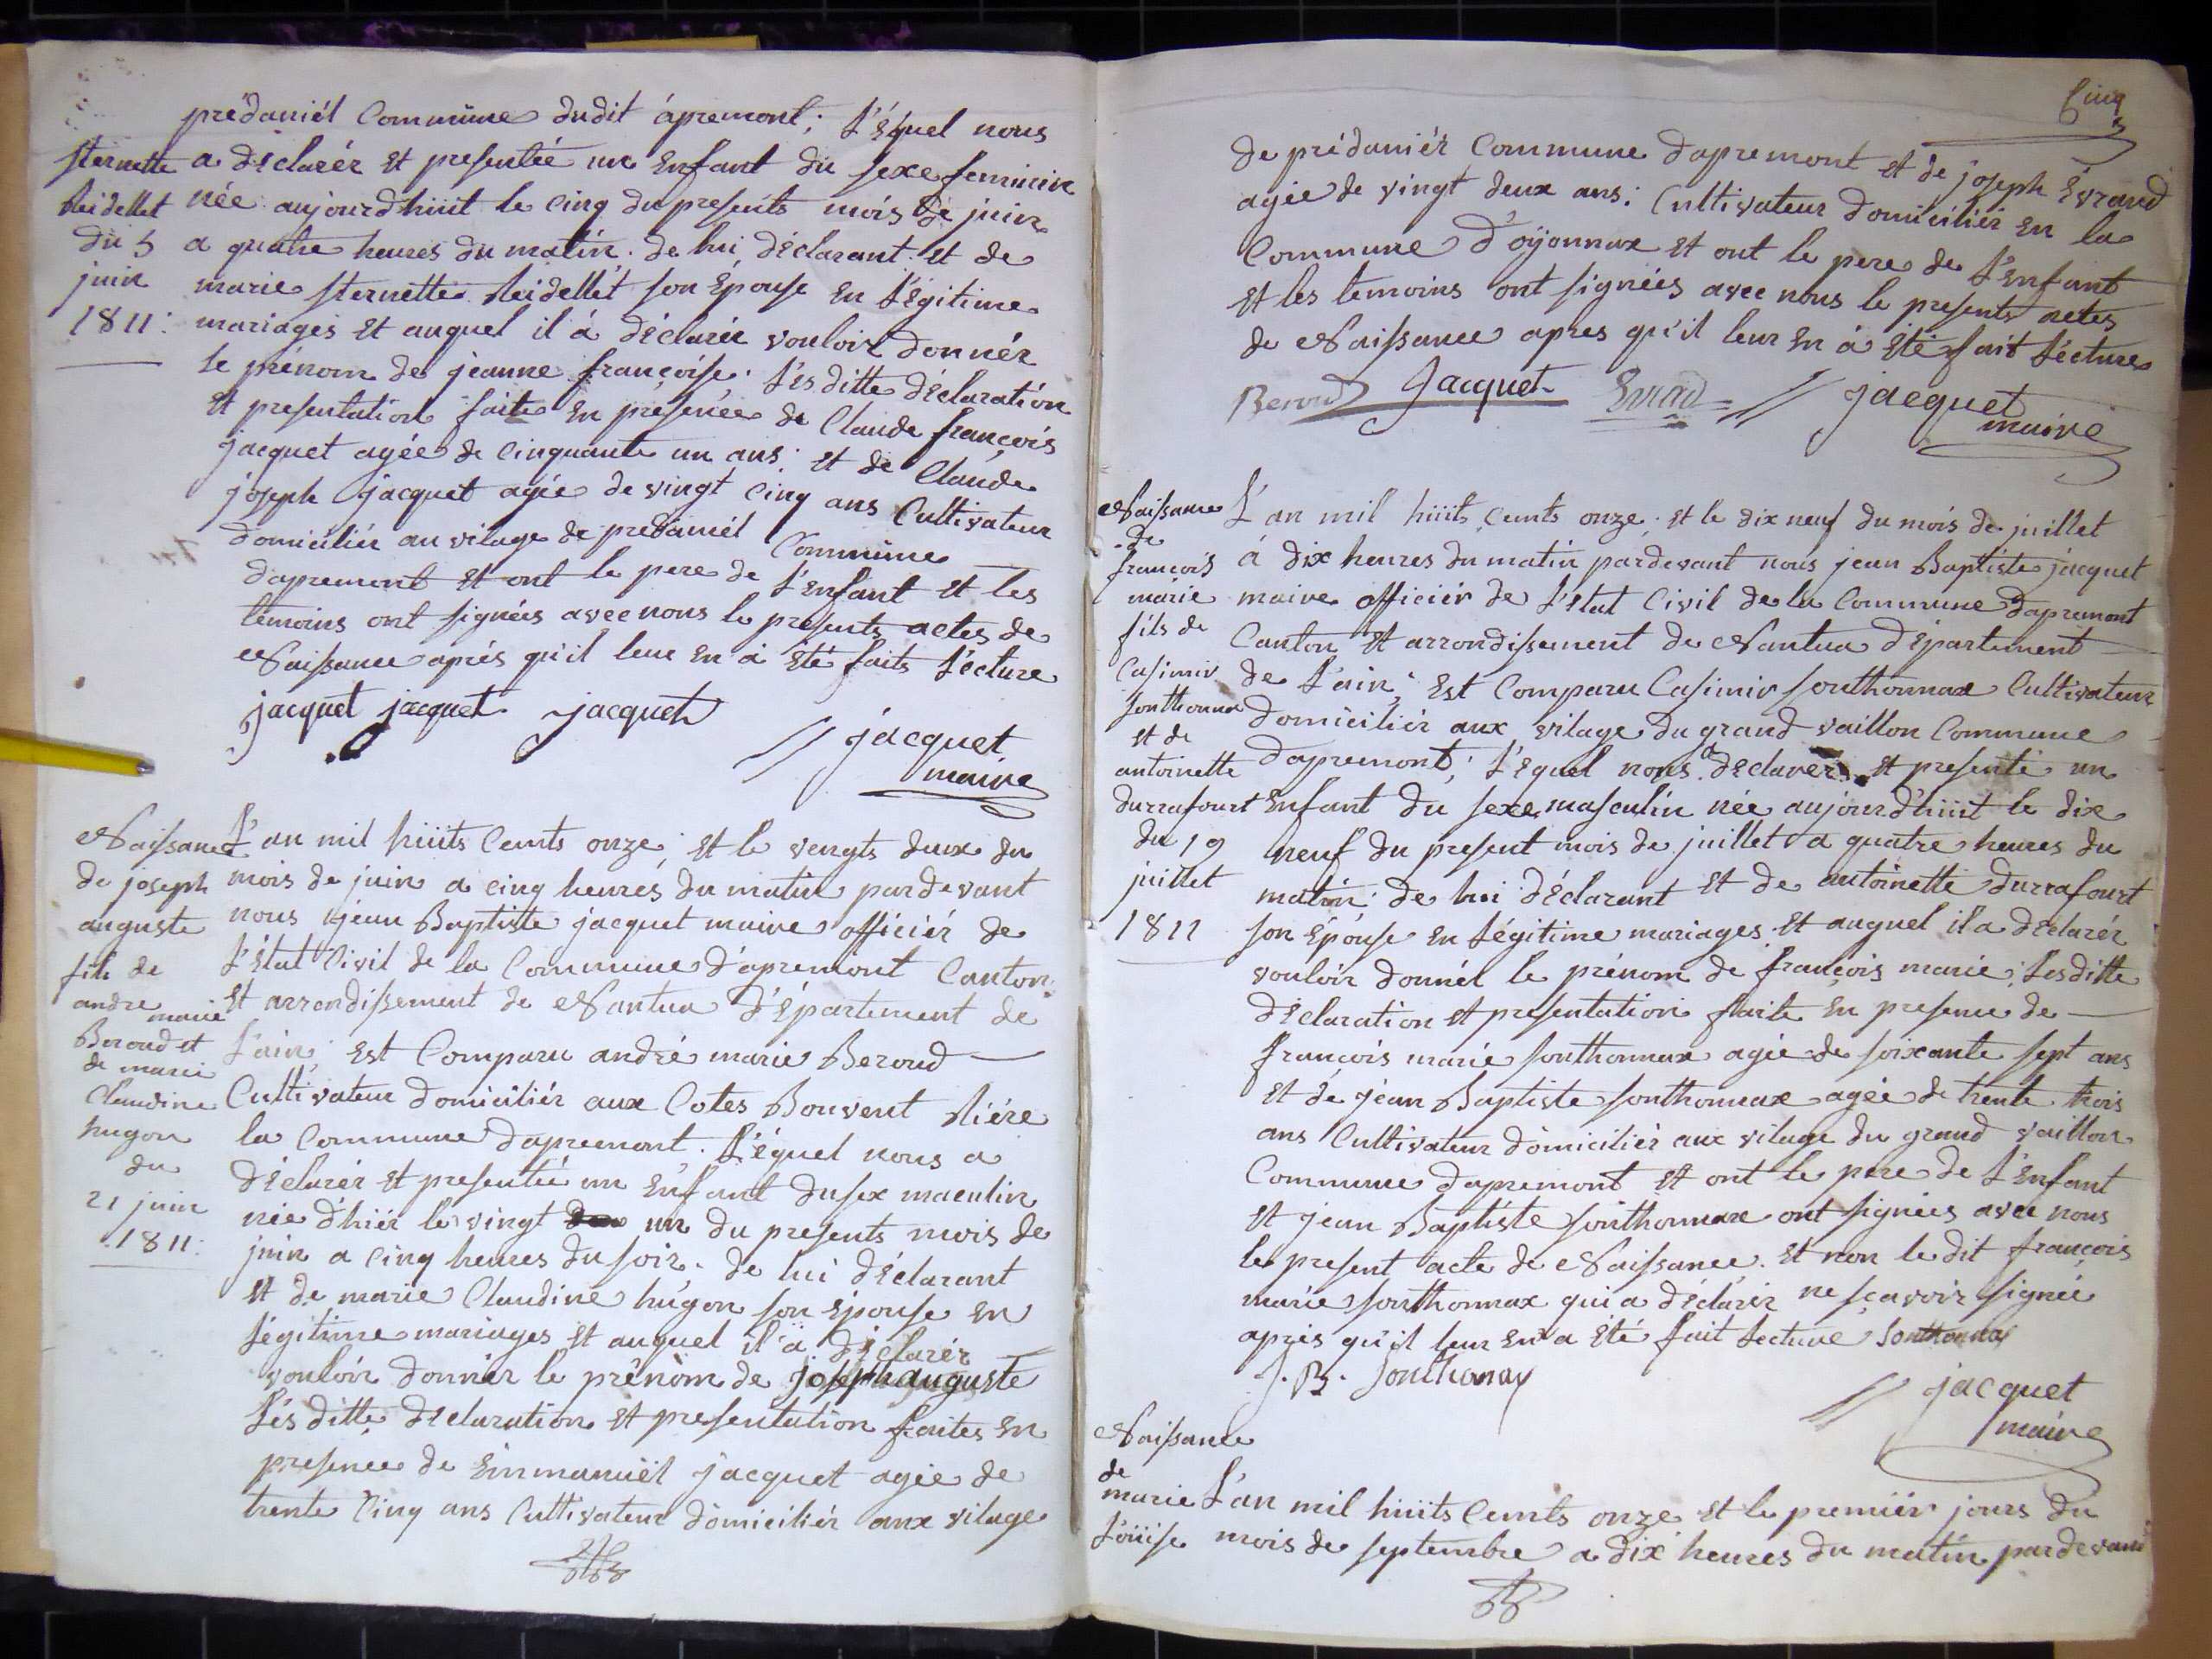 prédaniél Commune dudit ápremont; L'équel nous
Sternette
a déclarér et presentée un Enfant du sexe feminin
Reidellet
née aujourdhüit le cinq du presents mois de juin
du 5
a quatre heures du matin. de lui déclarant et de
juin
marie Sternette Reidellet son Épouse en Légitime
1811:
mariages et auquel il á déclarér vouloir donnér
le prénom de jeanne françoise. Les ditte déclaration
et presentation faite en présence de Claude françois
jacquet agée de cinquante un ans: et de Claude
joseph jacquet agée de vingt cinq ans Cultivateur
domiciliér au vilage de predaniél Commune
dapremont et ont le pere de L'Enfant et les
témoins ont signées avec nous le presents actes de
Naissance aprés qu'il leur en á eté faits Lécture
jacquet jacquet jacquet
jacquet
maire
Naissance
de joseph
auguste
fils de
andre marie
Beroud et
de marie
Claudine
hugon
du
21 juin
1811:
L'an mil hüits Cents onze; et le vengts deux du
mois de juin a cinq heures du matin pardevant
nous jean Baptiste jacquet maire officiér de
L'état Civil de la Commune d'apremont Canton
et arrondissement de Nantua d'Épartement de
L'ain; Est Comparu andré marie Beroud
Cultivateur domiciliér aux Cotes Bouvent Riére
la Commune dapremont. L'équel nous a
déclarér et presentée un Enfant du sex maculin
née d'hiér le vingt un du presents mois de
juin a cinq heures du soir. de lui déclarant
et de marie Claudine hugon son épouse en
Légitime mariages et auquel il á déclarér
vouloir donnér le prénom de joseph auguste
Lés ditte déclaration et presentation faites en
presence de Emmanuël jacquet agée de
trente cinq ans Cultivateur domiciliér aux vilage
Cinq
de prédaniér Commune dapremont et de joseph Evraud
agée de vingt deux ans: Cultivateur domiciliér en la
Commune d'oÿonnax et ont le pere de L'Enfant
et les temoins ont signées avec nous le presents actes
de Naissance apres qu'il leur en á été fait Lécture
Beroud Jacquet Evrad jacquet
maire
Naissance
de
françois
marie
fils de
Casimir
Sonthonnax
et de
antoinette
Durrafourt
du 19
juillet
1811
L'an mil hüits Cents onze; et le dix neuf du mois de juillet
á dix heures du matin pardevant nous jean Baptiste jacquet
maire officiér de L'état Civil de la Commune dapremont
Canton et arrondissement de Nantua département
de L'ain; Est Comparu Casimir Sonthonnax Cultivateur
domiciliér aux vilage du grand vaillon Commune
dapremont; L'équel nous a déclarér et presenté un
Enfant du sexe masculin née aujourd'hüit le dix
neuf du present mois de juillet a quatre heures du
matin: de lui déclarant et de antoinette Durrafourt
son Épouse en Légitime mariages et auquel il a déclarér
vouloir donnél le prénom de françois marie; Les ditte
déclaration et presentation faite en presence de
françois marie Sonthonnax agée de soixante sept ans
et dé jean Baptiste Sonthonnax agée de trente trois
ans Cultivateur domiciliér aux vilage du grand vaillon
Commune dapremont et ont le pere de L'Enfant
et jean Baptiste Sonthonnax ont signées avec nous
le present acte de Naissance. et non le dit françois
marie Sonthonnax qui a déclarér ne sçavoir signée
aprés qu'il leur en a été fait Lecture Sonthonnax
J. B. Sonthonax
jacquet
maire
Naissance
de
marie
Loüise
L'an mil hüits Cents onze et le premiér jours du
mois de septembre a dix heures du matin pardevant